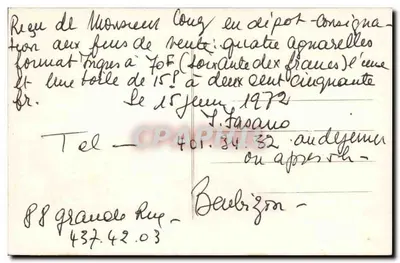 Reçu de Monsieur Coug en dépot-consigna-
tion aux fins de vente: quatre aquarelles
format Vigies à 70F (soixante dix francs) l'une
et une toile de 15F à deux cent cinquante
fr. Le 15 juin 1972
J. Fasano
Tel — 401.34.32 au dejeuner
ou apres 8h -
88 grande Rue - Barbizon -
437.42.03